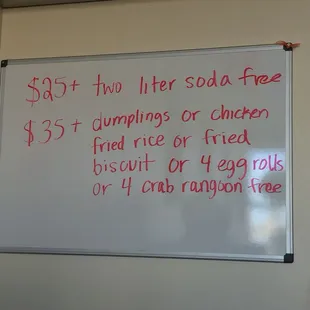 $25+ two liter soda free
$35+ dumplings or chicken
fried rice or fried
biscuit or 4 egg rolls
or 4 crab rangoon free